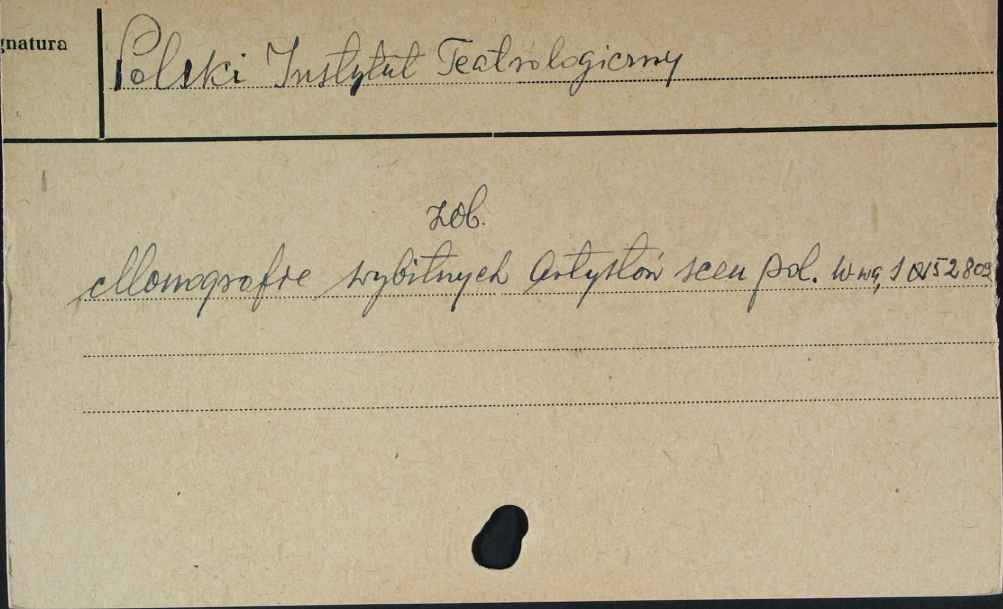 gnatura
Polski Instytut Teatrologiczny
zob.
Monografie wybitnych Artystów scen pol. W-wa,